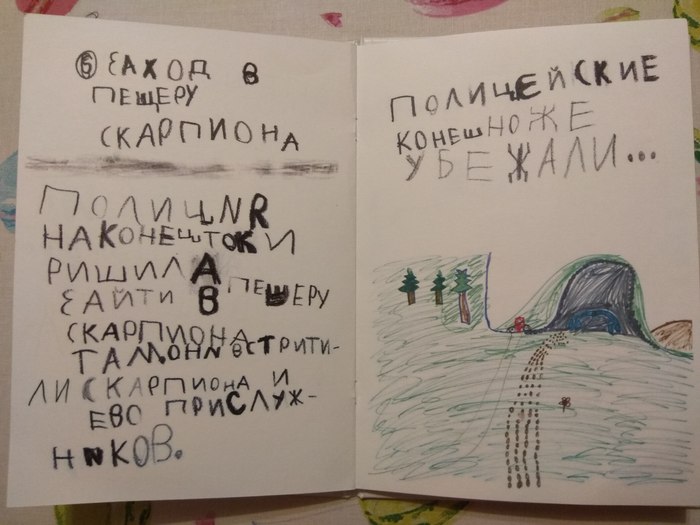 ⑤ ЗАХОД В
ПЕЩЕРУ
СКАРПИОНА
ПОЛИЦИЯ
НАКОНЕШТОКИ
РИШИЛА
ЗАЙТИ В ПЕЩЕРУ
СКАРПИОНА
ТАМОНИ ВСТРИТИ-
ЛИ СКАРПИОНА И
ЕВО ПРИСЛУЖ-
НИКОВ.
ПОЛИЦЕЙСКИЕ
КОНЕШНОЖЕ
УБЕЖАЛИ...